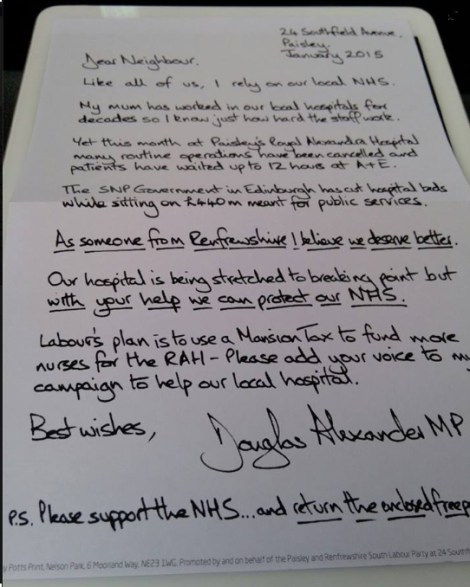 24 Southfield Avenue,
Paisley.
January 2015
Dear Neighbour.
Like all of us, I rely on our local NHS.
My mum has worked in our local hospitals for
decades so I know just how hard the staff work.
Yet this month at Paisley's Royal Alexandra Hospital
many routine operations have been cancelled and
patients have waited up to 12 hours at A+E.
The SNP Government in Edinburgh has cut hospital beds
while sitting on £440m meant for public services.
As someone from Renfrewshire I believe we deserve better.
Our hospital is being stretched to breaking point but
with your help we can protect our NHS.
Labour's plan is to use a Mansion Tax to fund more
nurses for the RAH - Please add your voice to my
campaign to help our local hospital.
Best wishes,
Douglas Alexander MP
P.S. Please support the NHS... and return the enclosed freep
y Potts Print, Nelson Park, 6 Moorland Way, NE23 1WG. Promoted by and on behalf of the Paisley and Renfrewshire South Labour Party at 24 Southf